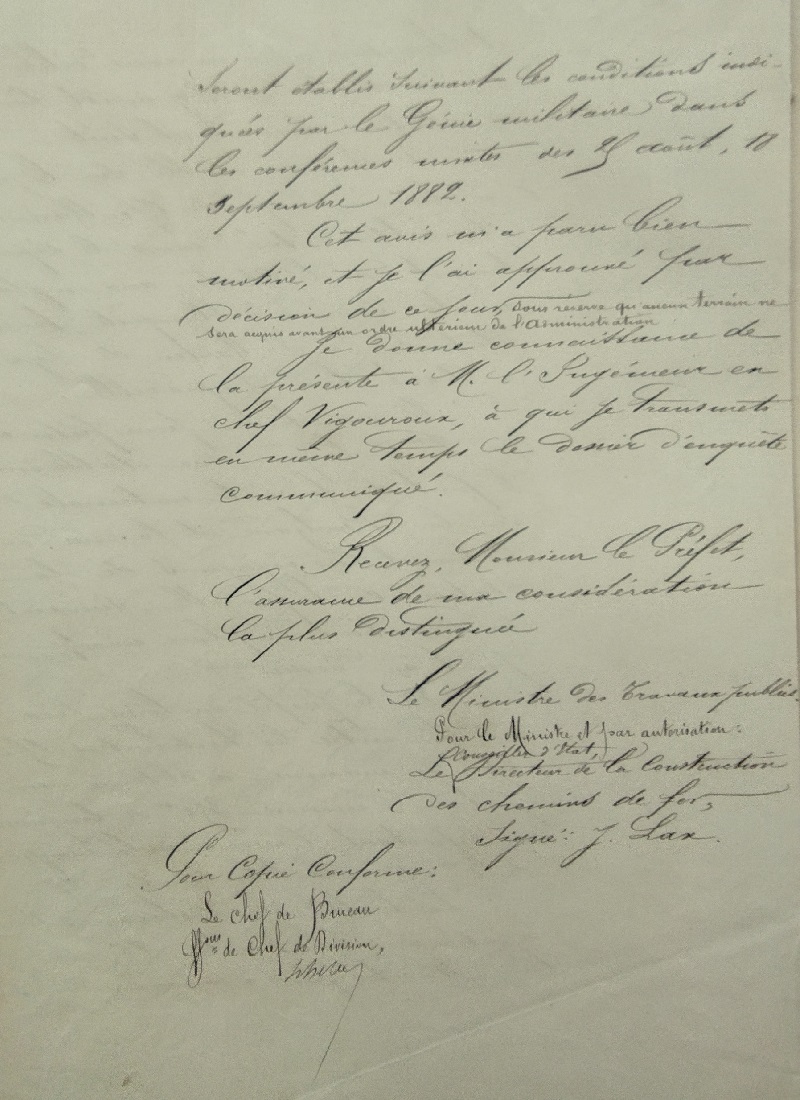 seront établis suivant les conditions indi-
qués par le Génie militaire dans
les conférences mixtes des 25 août, 18
Septembre 1882.
Cet avis m'a paru bien
motivé, et je l'ai approuvé par
décision de ce jour, sous réserve qu'aucun terrain ne
sera acquis avant un ordre ultérieur de l'administration
Je donne connaissance de
la présente à M. l'Ingénieur en
chef Vigouroux, à qui je transmets
en même temps le dossier d'enquête
communiqué.
Recevez, Monsieur le Préfet,
l'assurance de ma considération
la plus distinguée
Le Ministre des Travaux publics.
Pour le Ministre et par autorisation:
Conseiller d'Etat,
Le Directeur de la Construction
des chemins de fer,
Signé: J. Lax.
Pour Copie Conforme:
Le chef de Bureau
ffons de Chef de Division,